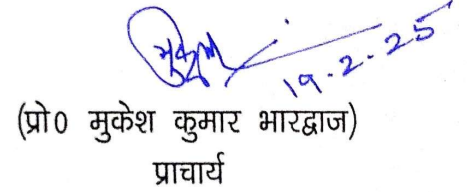 मुकेश
19.2.25
(प्रो0 मुकेश कुमार भारद्वाज)
प्राचार्य